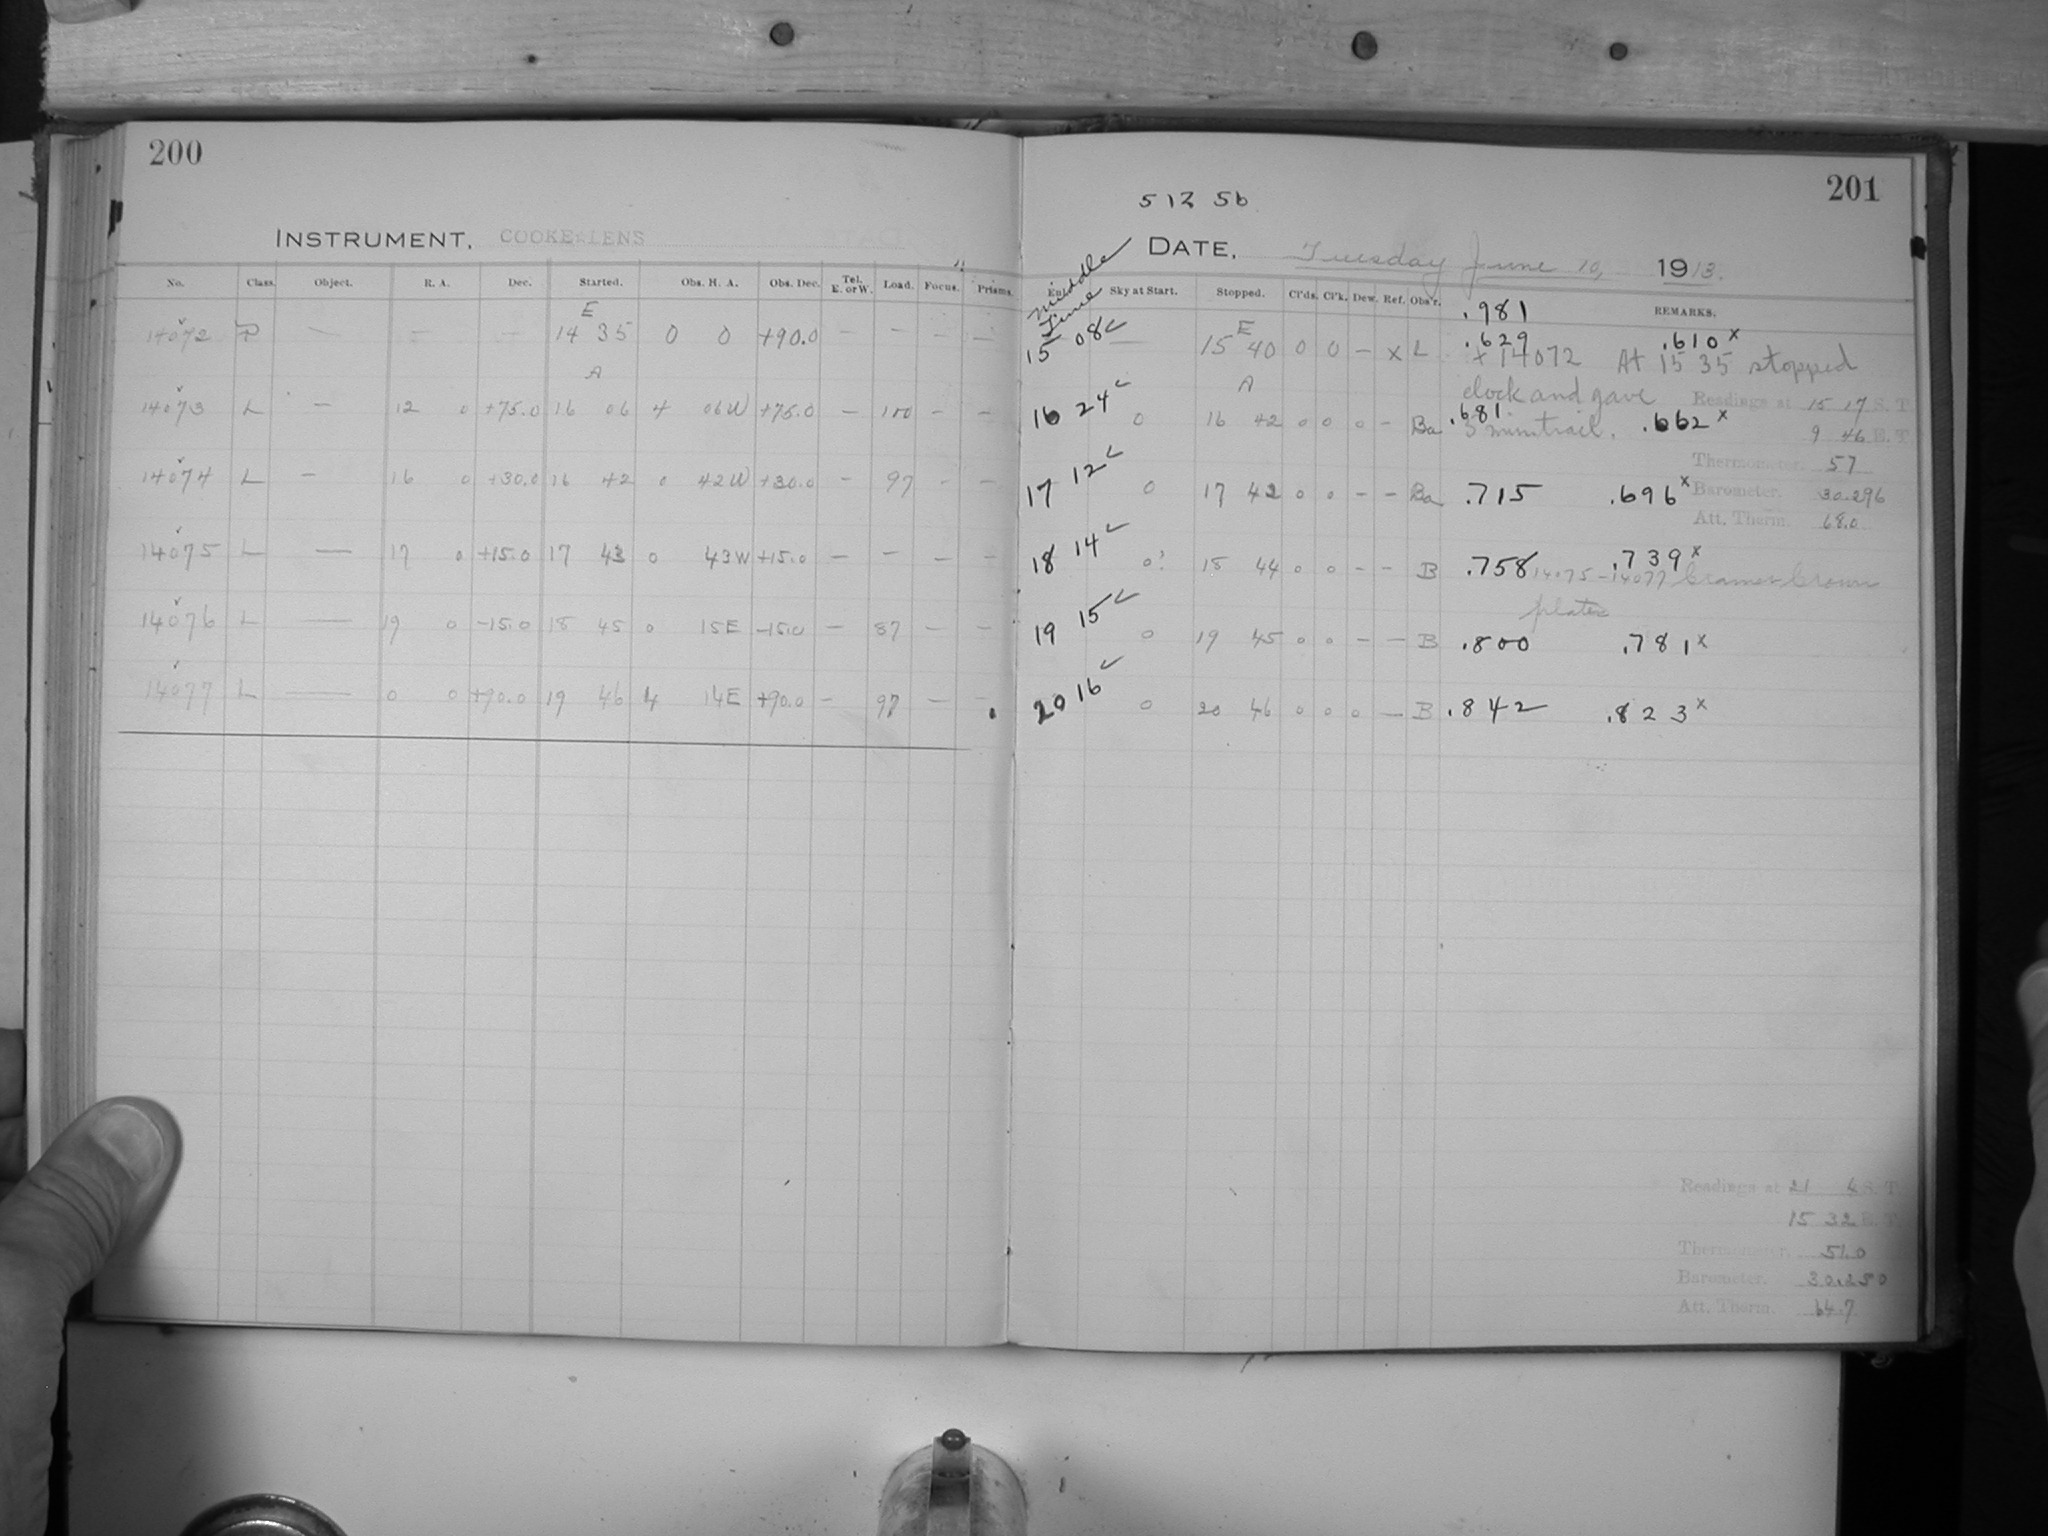 200
INSTRUMENT, COOKE LENS
No. Class. Object. R. A. Dec. Started. Obs. H. A. Obs. Dec. Tel. E. or W. Load. Focus. Prisms.
E
14072 P — — — 14 35 0 0 +90.0 — — — —
A
14073 L — 12 0 +75.0 16 06 4 06W +75.0 — 100 — —
14074 L — 16 0 +30.0 16 42 0 42W +30.0 — 97 — —
14075 L — 17 0 +15.0 17 43 0 43W +15.0 — — — —
14076 L — 19 0 -15.0 18 45 0 15E -15.0 — 87 — —
14077 L — 0 0 +90.0 19 46 4 14E +90.0 — 97 — —
201
512 56
DATE, Tuesday June 10, 1913.
Middle Time
Sky at Start. Stopped. Cl'ds. Cl'k. Dew. Ref. Obs'r. REMARKS.
.981
15 08 ✓ — E 15 40 0 0 — x L .629 .610 x
+ 14072 At 15 35 stopped
clock and gave
5 min trail.
Readings at 15 17 S. T.
9 46 E. T.
Thermometer. 57
Barometer. 30.296
Att. Therm. 68.0
A
16 24 ✓ 0 16 42 0 0 0 — Ba .681 .662 x
17 12 ✓ 0 17 42 0 0 — — Ba .715 .696 x
18 14 ✓ 0 18 44 0 0 — — B .758 .739 x
14075-14077 Cramer Crown
plates
19 15 ✓ 0 19 45 0 0 — — B .800 .781 x
20 16 ✓ 0 20 46 0 0 0 — B .842 .823 x
Readings at 21 4 S. T.
15 32 E. T.
Thermometer. 51.0
Barometer. 30.250
Att. Therm. 64.7